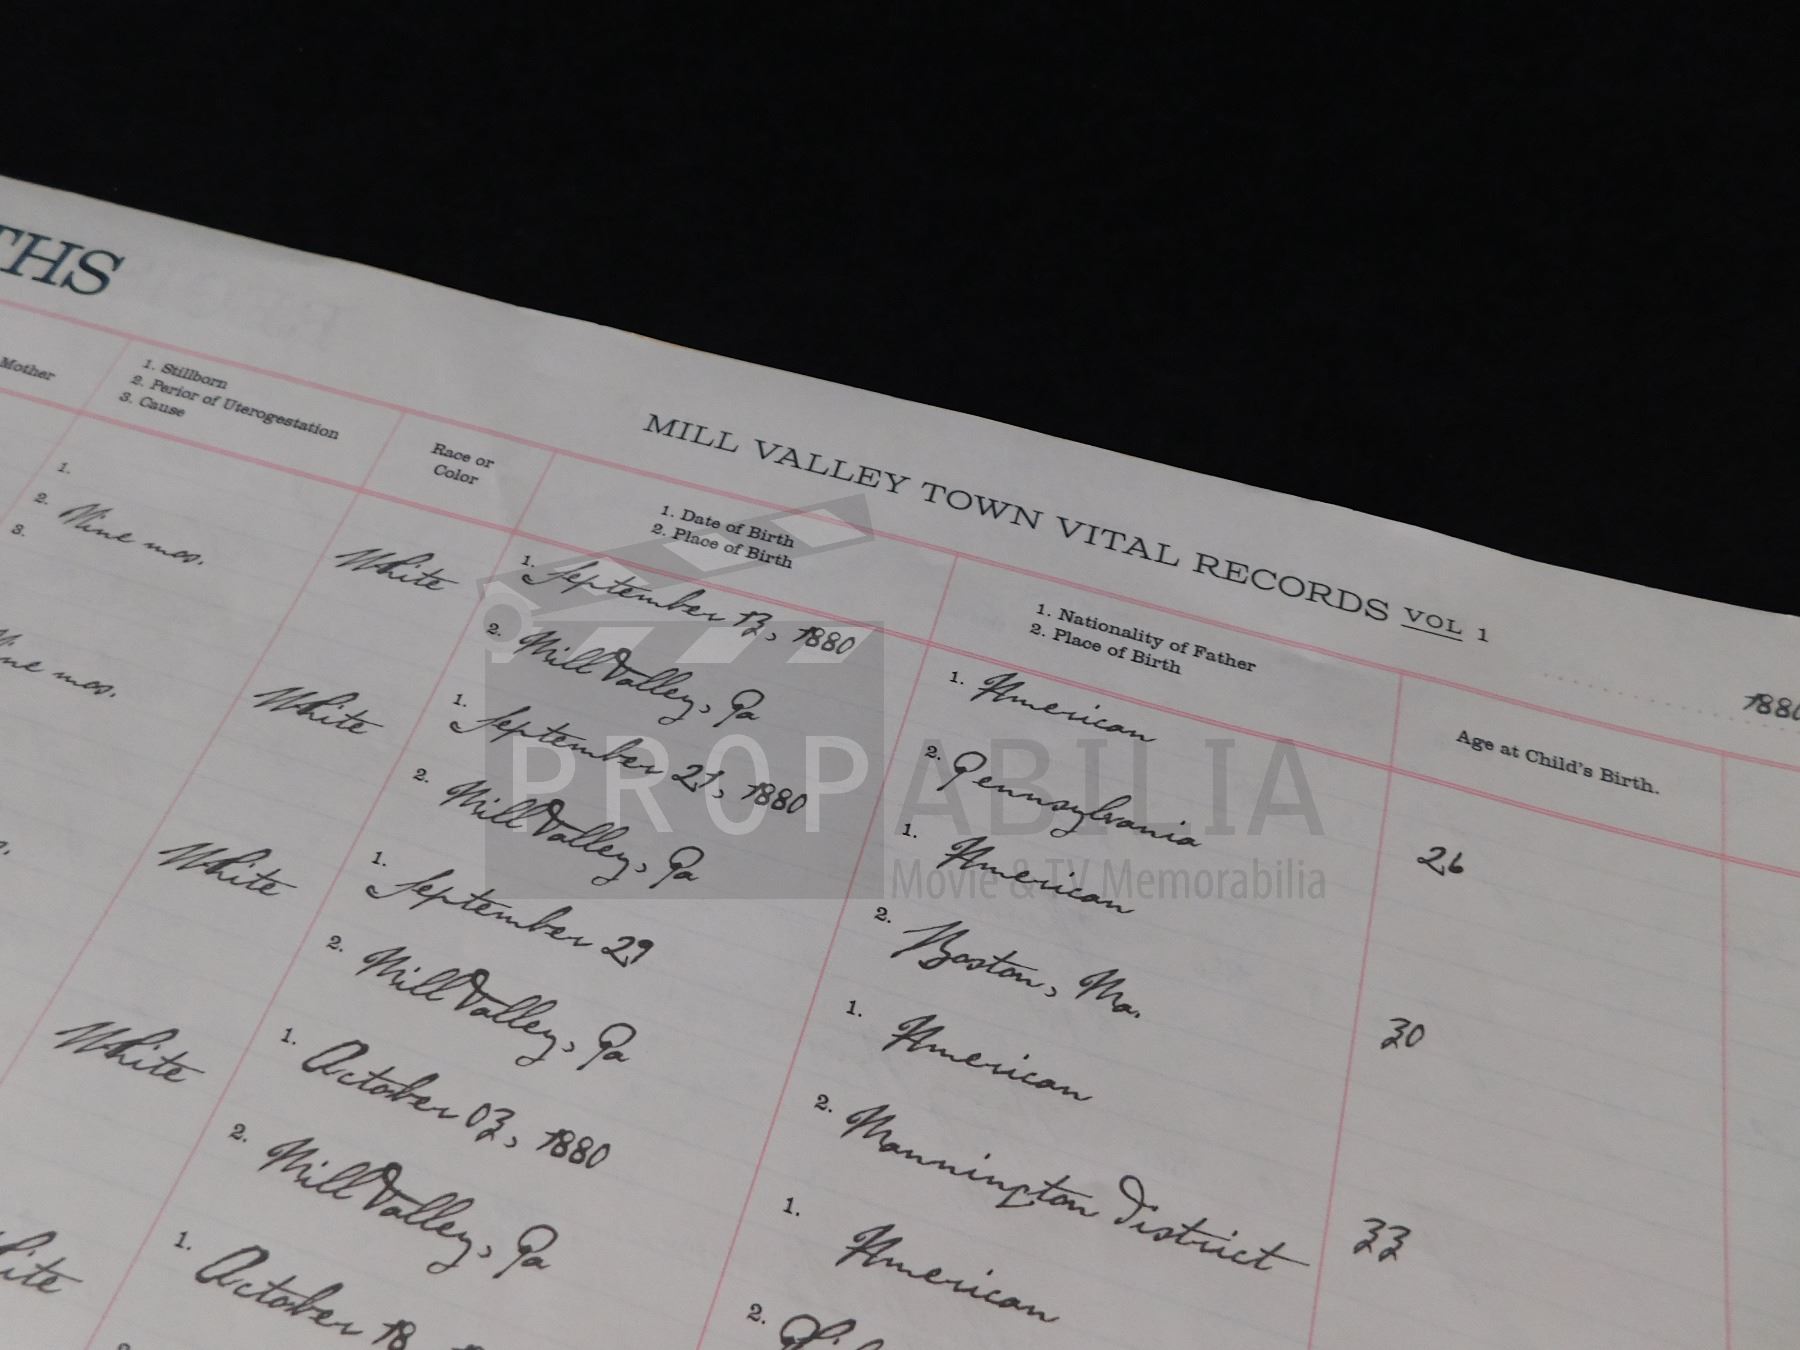 THS
MILL VALLEY TOWN VITAL RECORDS VOL 1
1880
Mother
1. Stillborn
2. Perior of Uterogestation
3. Cause
Race or
Color
1. Date of Birth
2. Place of Birth
1. Nationality of Father
2. Place of Birth
Age at Child's Birth.
1.
2. Nine mos.
3.
White
1. September 13, 1880
2. Mill Valley, Pa
1. American
2. Pennsylvania
26
mos.
White
1. September 21, 1880
2. Mill Valley, Pa
1. American
2. Boston, Ma.
30
White
1. September 29
2. Mill Valley, Pa
1. American
2. Mannington District
33
White
1. October 03, 1880
2. Mill Valley, Pa
1. American
2.
1. October 18
PROPABILIA
Movie & TV Memorabilia